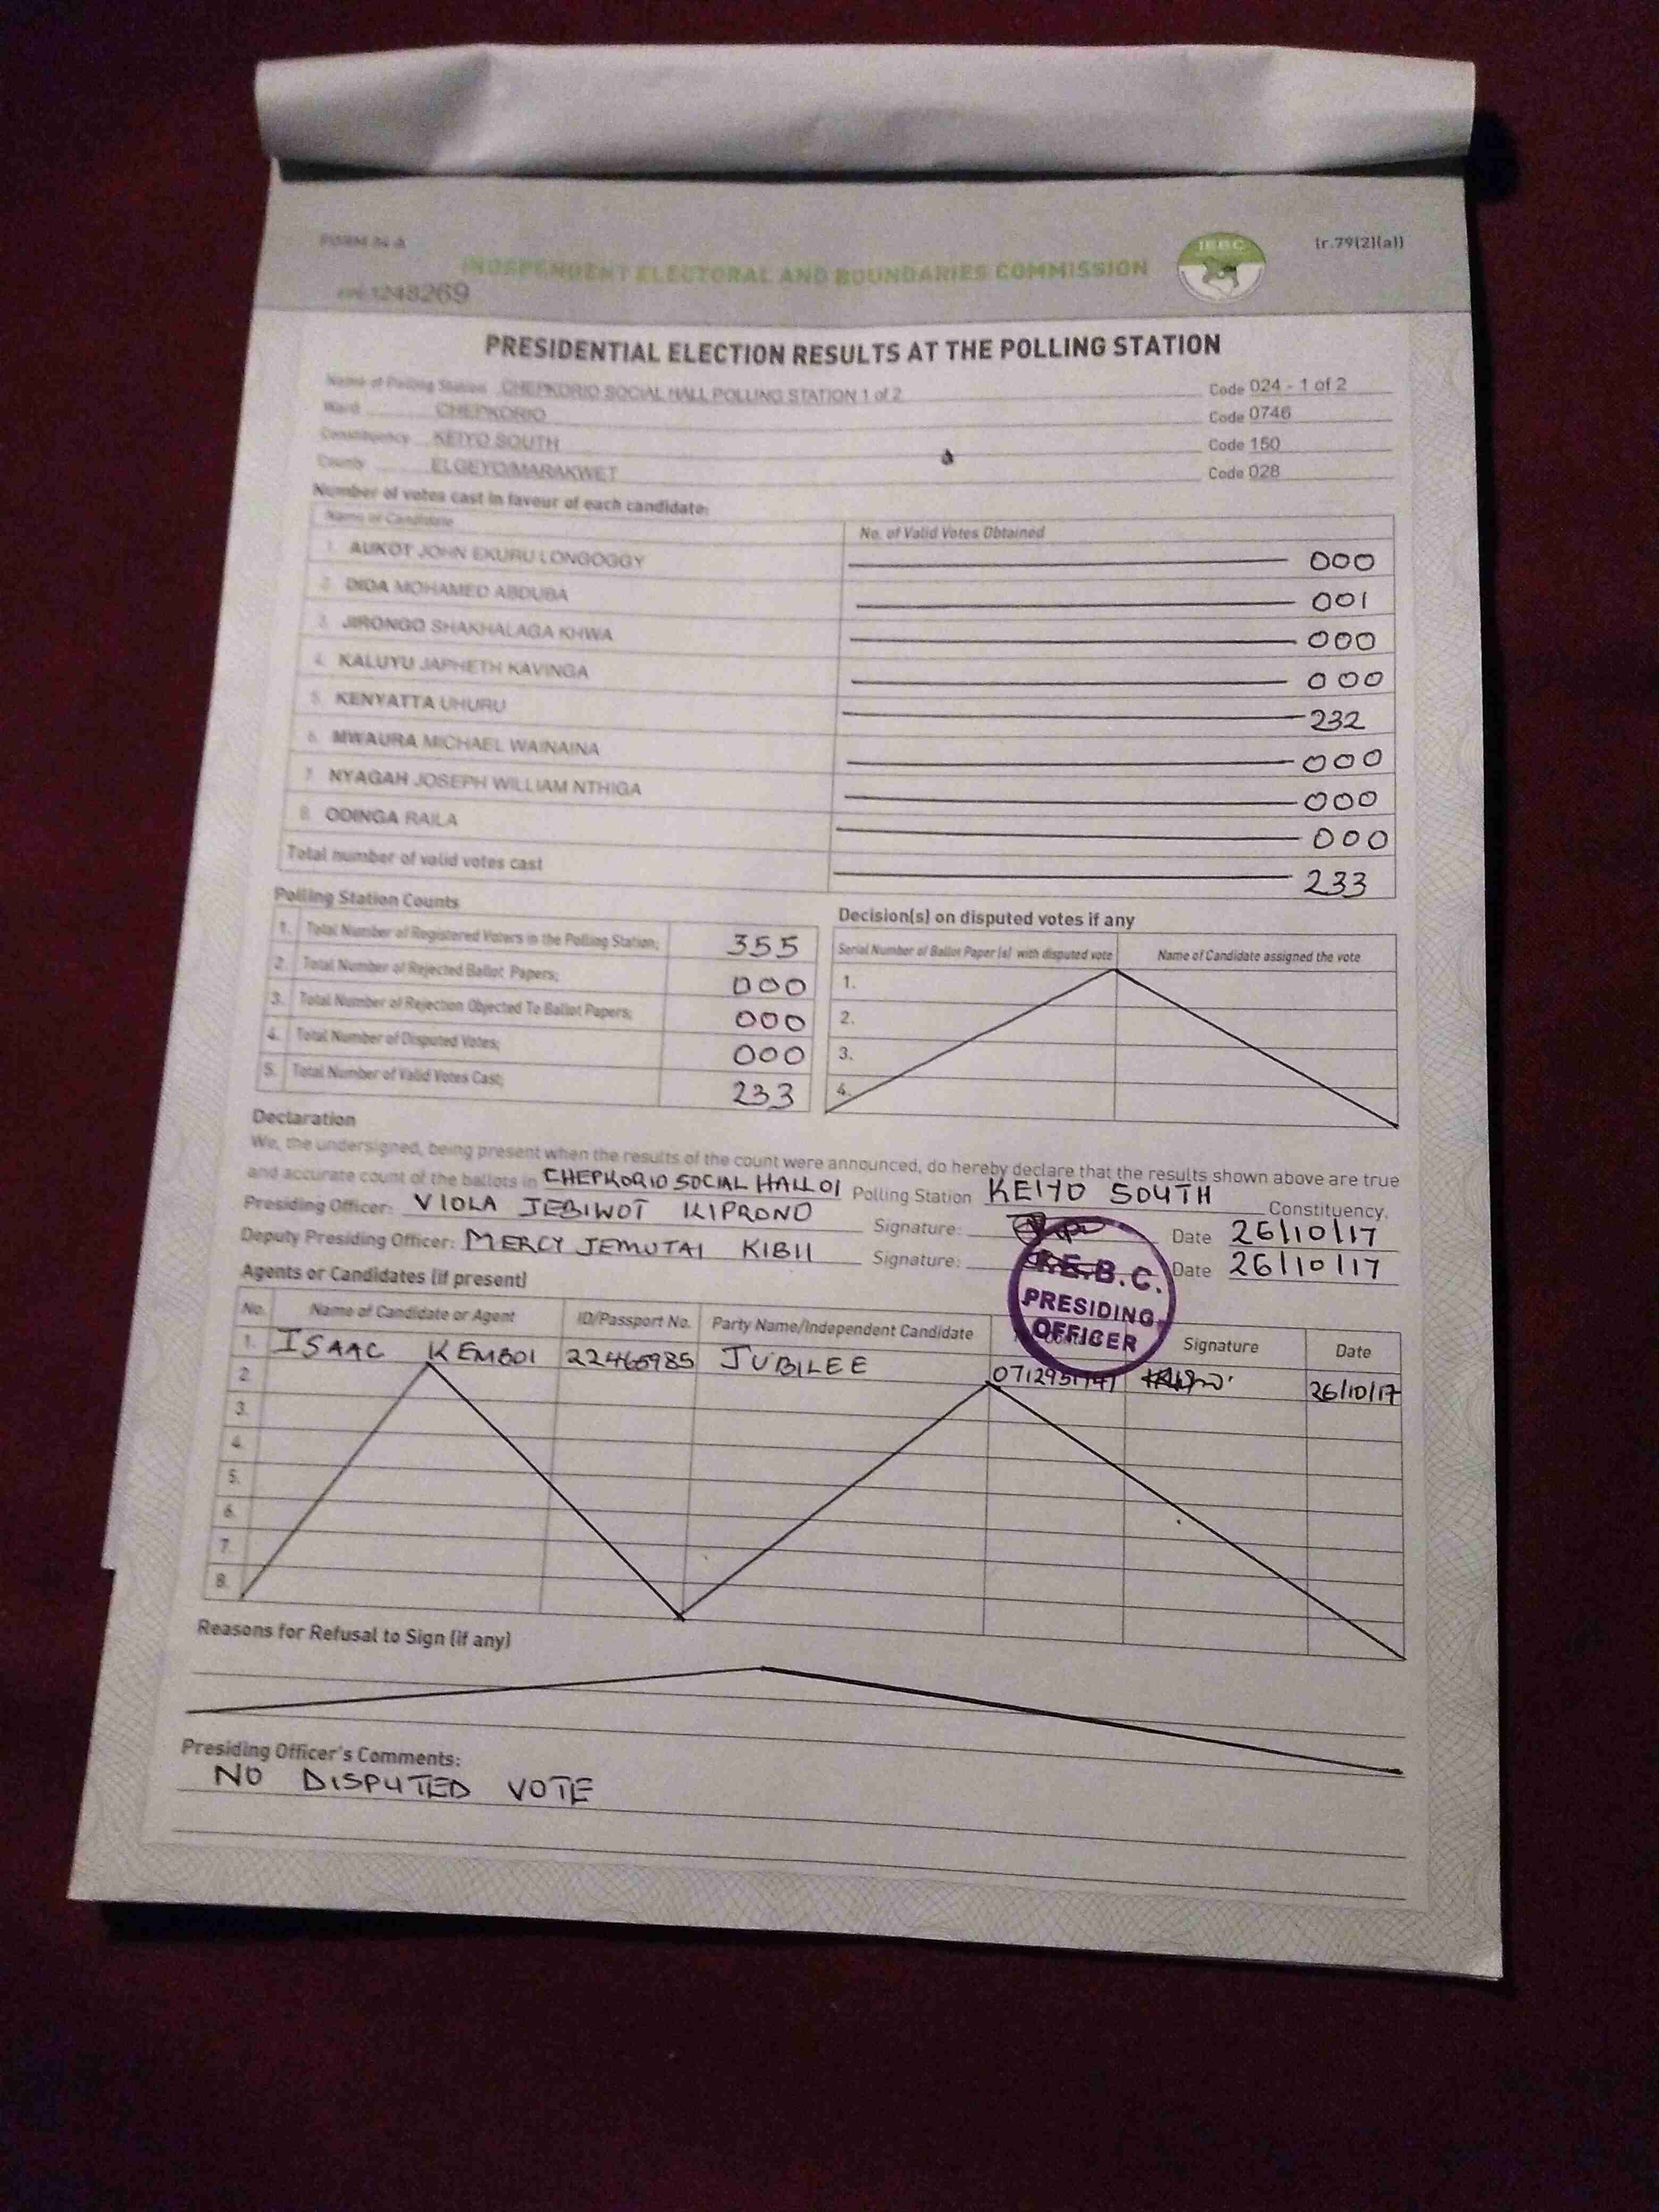 FORM 34 A
(r.79(2)(a))
IEBC
INDEPENDENT ELECTORAL AND BOUNDARIES COMMISSION
1248269
PRESIDENTIAL ELECTION RESULTS AT THE POLLING STATION
Name of Polling Station CHEPKORIO SOCIAL HALL POLLING STATION 1 of 2 Code 024 - 1 of 2
Ward CHEPKORIO Code 0746
Constituency KEIYO SOUTH Code 150
County ELGEYO/MARAKWET Code 028
Number of votes cast in favour of each candidate:
Name of Candidate No. of Valid Votes Obtained
1. AUKOT JOHN EKURU LONGOGGY 000
2. DIDA MOHAMED ABDUBA 001
3. JIRONGO SHAKHALAGA KHWA 000
4. KALUYU JAPHETH KAVINGA 000
5. KENYATTA UHURU 232
6. MWAURA MICHAEL WAINAINA 000
7. NYAGAH JOSEPH WILLIAM NTHIGA 000
8. ODINGA RAILA 000
Total number of valid votes cast 233
Polling Station Counts
1. Total Number of Registered Voters in the Polling Station; 355
2. Total Number of Rejected Ballot Papers; 000
3. Total Number of Rejection Objected To Ballot Papers; 000
4. Total Number of Disputed Votes; 000
5. Total Number of Valid Votes Cast; 233
Decision(s) on disputed votes if any
Serial Number of Ballot Paper (s) with disputed vote Name of Candidate assigned the vote
1.
2.
3.
4.
Declaration
We, the undersigned, being present when the results of the count were announced, do hereby declare that the results shown above are true
and accurate count of the ballots in CHEPKORIO SOCIAL HALL 01 Polling Station KEIYO SOUTH Constituency.
Presiding Officer: VIOLA JEBIWOT KIPRONO Signature: Date 26/10/17
Deputy Presiding Officer: MERCY JEMUTAI KIBII Signature: Date 26/10/17
I.E.B.C.
PRESIDING
OFFICER
Agents or Candidates (if present)
No. Name of Candidate or Agent ID/Passport No. Party Name/Independent Candidate Signature Date
1. ISAAC KEMBOI 22465985 JUBILEE 26/10/17
2.
3.
4.
5.
6.
7.
8.
Reasons for Refusal to Sign (if any)
Presiding Officer's Comments:
NO DISPUTED VOTE